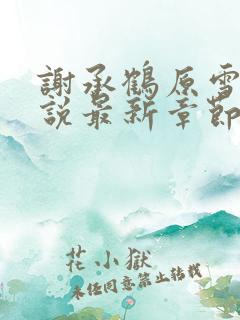 謝承鶴原雪
說最新章節
花小獄
未經同意禁止轉載